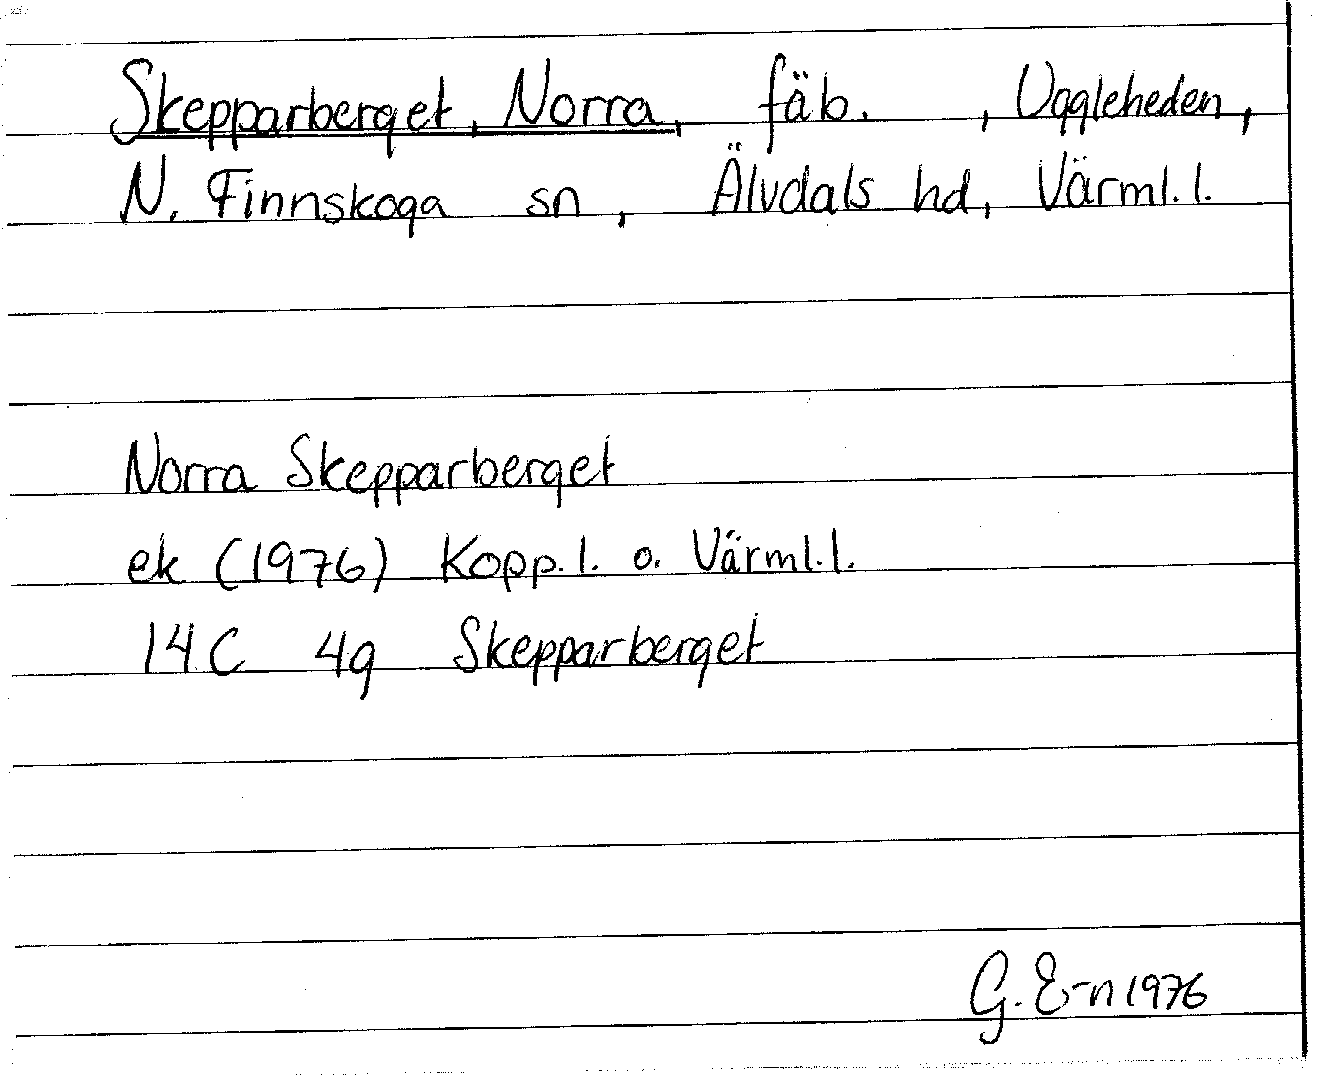 Skepparberget, Norra, fäb. , Uggleheden,
N. Finnskoga sn , Älvdals hd, Värml. l.
Norra Skepparberget
ek (1976) Kopp. l. o. Värml. l.
14 C 4g Skepparberget
G. E-n 1976